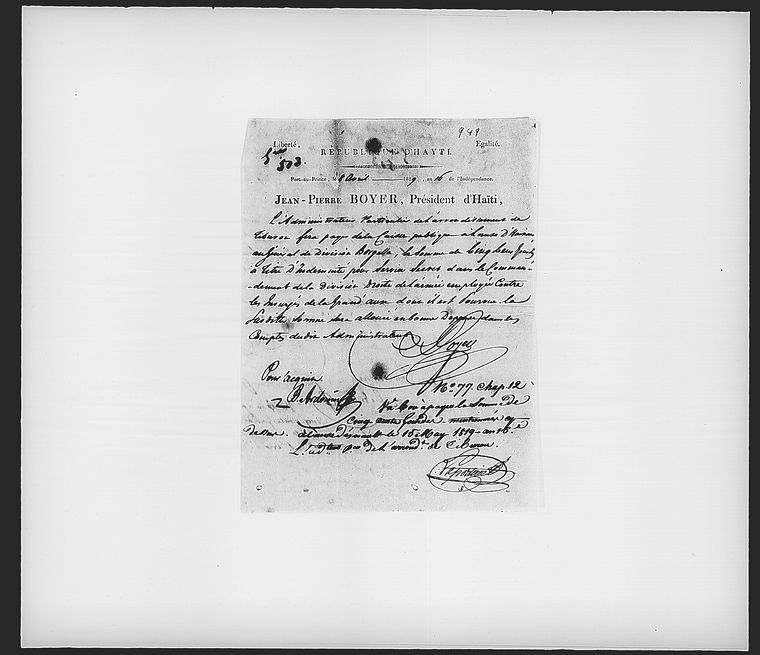 949
Liberté, Egalité.
RÉPUBLIQUE D'HAYTI.
503.
Port-au-Prince, le 8 Avril 1819, an 16 de l'Indépendance.
JEAN-PIERRE BOYER, Président d'Haïti,
L'Administrateur Particulier de l'arrondissement de
Tiburon fera payer de la Caisse publique à l'anse d'Hainault
au Général de Division Borgella, la Somme de Cinq Cens Gourdes
à titre D'Indemnité pour Service dans le Comman-
-dement de la Division Droite de l'armée employée Contre
les Insurgés de la Grand'anse dont il est pourvu la
Susdite Somme Sera allouée en bonne Dépense dans les
Comptes dudit Administrateur
Boyer
Pour acquis
B. Ardouin
No. 77. Chap. 12
Vu Bon à payer la Somme de
Cinq cents Gourdes mentionnée cy
dessus. à l'anse d'hainault le 16 May 1819 - an 16e
L'adteur per de l'arrondt de Tiburon.